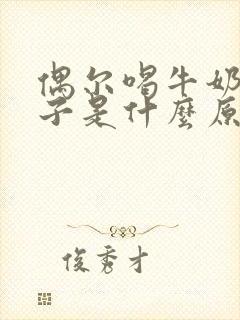 偶尔喝牛奶
子是什麽原
俊秀才